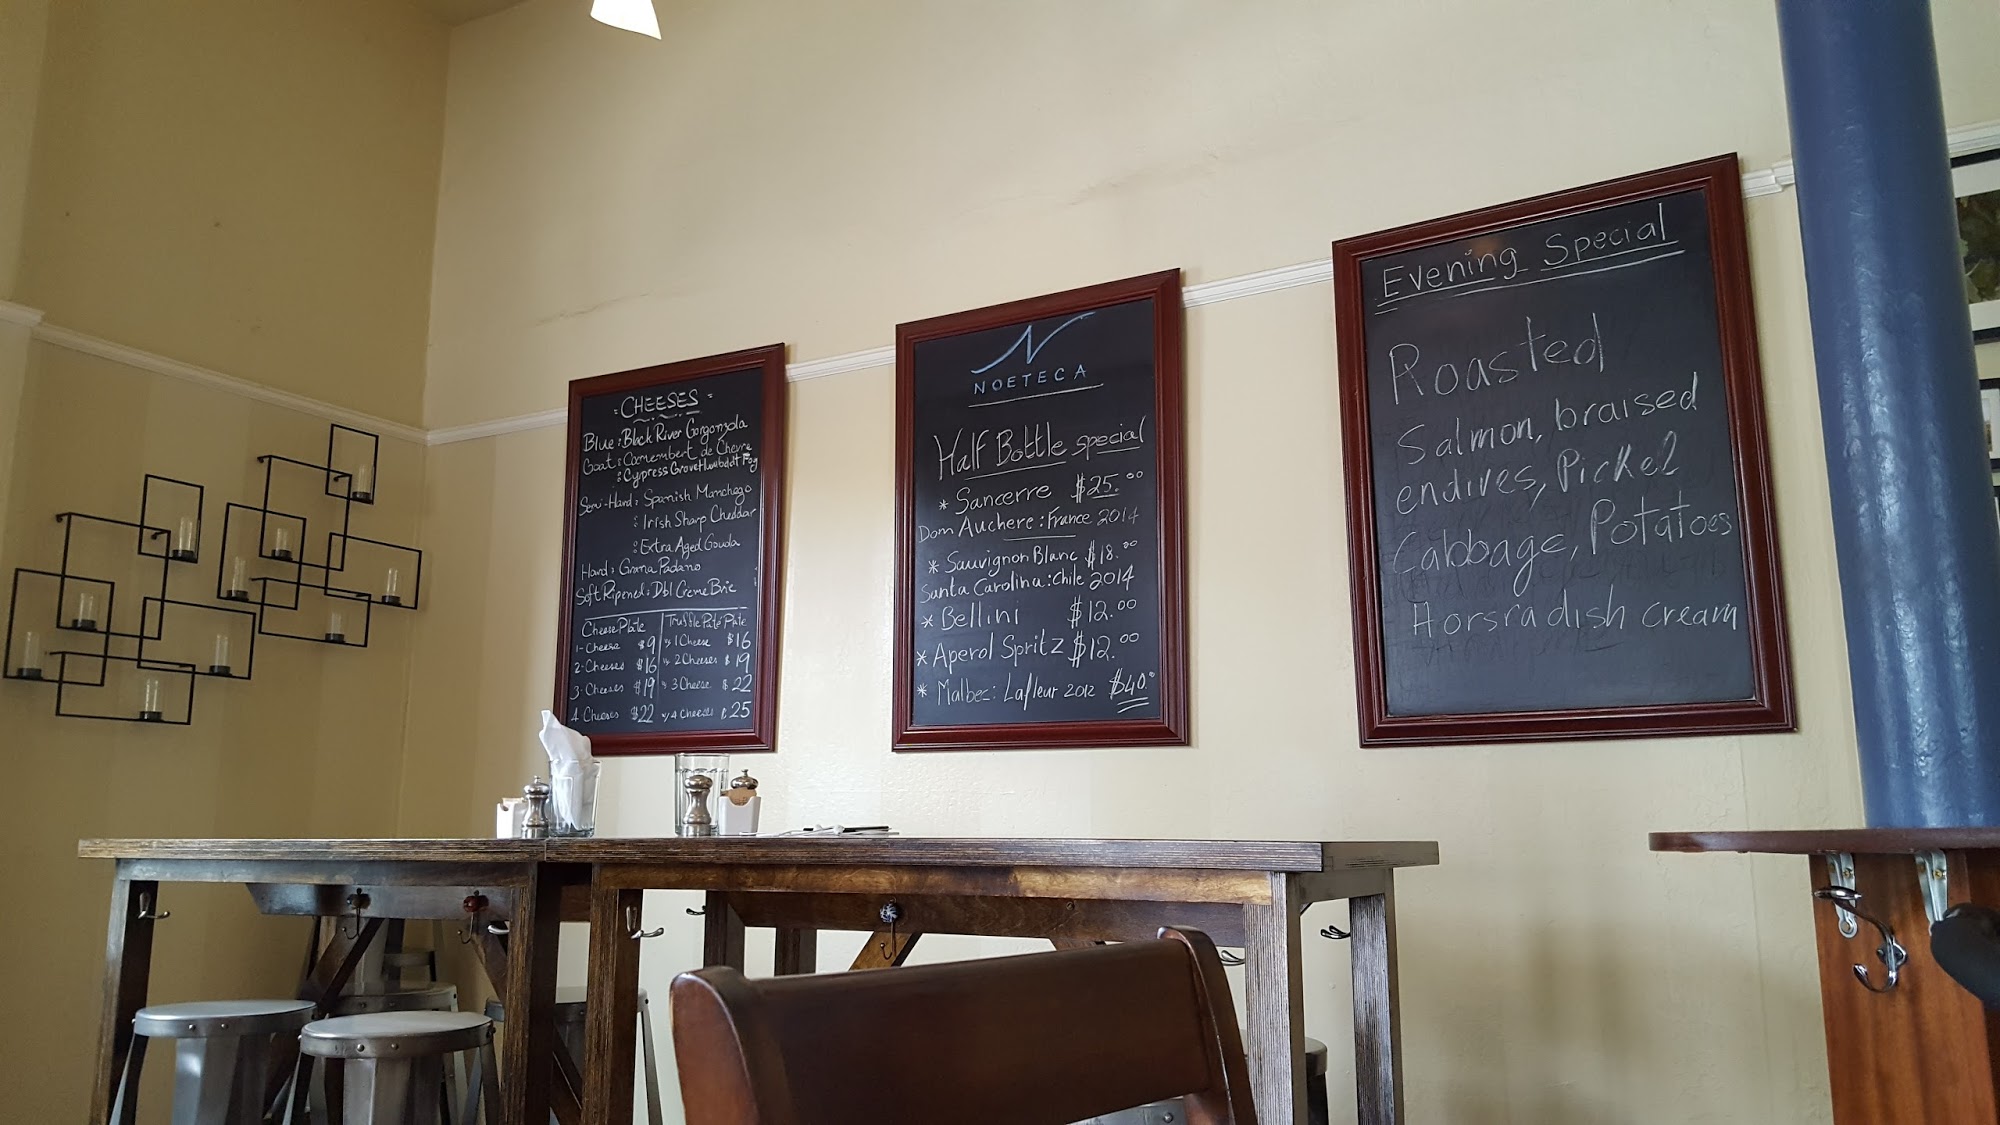 CHEESES
Blue : Black River Gorgonzola
Goat : Camembert de Chevre
: Cypress Grove Humboldt Fog
Semi-Hard : Spanish Manchego
: Irish Sharp Cheddar
: Extra Aged Gouda
Hard : Grana Padano
Soft Ripened : Dbl Creme Brie
Cheese Plate
1- Cheese $9
2- Cheeses $16
3- Cheeses $19
4 Cheeses $22
Truffle Paté Plate
w/ 1 Cheese $16
w/ 2 Cheeses $19
w/ 3 Cheese $22
w/ 4 Cheeses $25
NOETECA
Half Bottle special
* Sancerre $25.00
Dom Auchere : France 2014
* Sauvignon Blanc $18.00
Santa Carolina : Chile 2014
* Bellini $12.00
* Aperol Spritz $12.00
* Malbec : Lafleur 2012 $40.00
Evening Special
Roasted
Salmon, braised
endives, Pickel
Cabbage, Potatoes
Horsradish cream